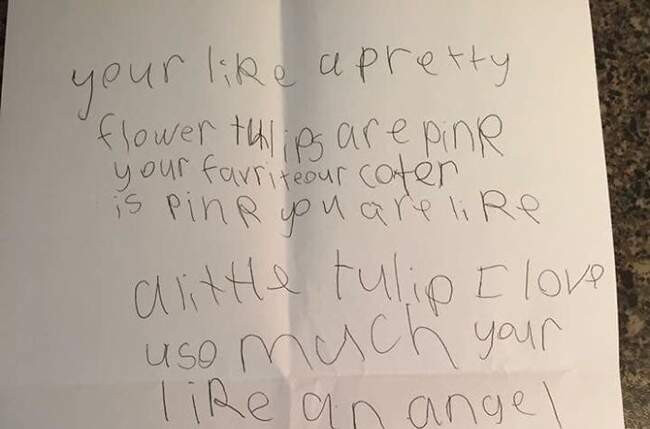 your like a pretty
flower tulips are pink
your favriteour coler
is pink you are like
a little tulip I love
u so much your
like an angel